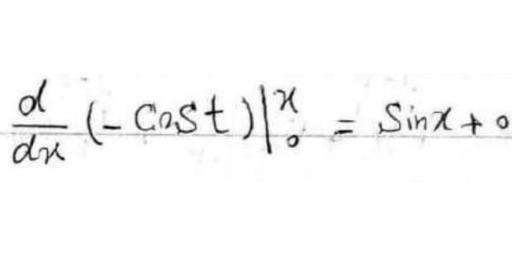 \frac{d}{dx} (-Cost)\Big|_{0}^{x} = Sinx + 0